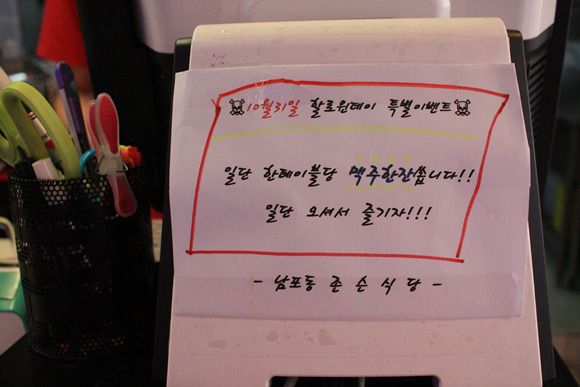 10월31일 할로윈데이 특별이벤트
일단 한테이블당 맥주한잔씁니다!!
일단 오셔서 즐기자!!!
- 남포동 존슨식당 -